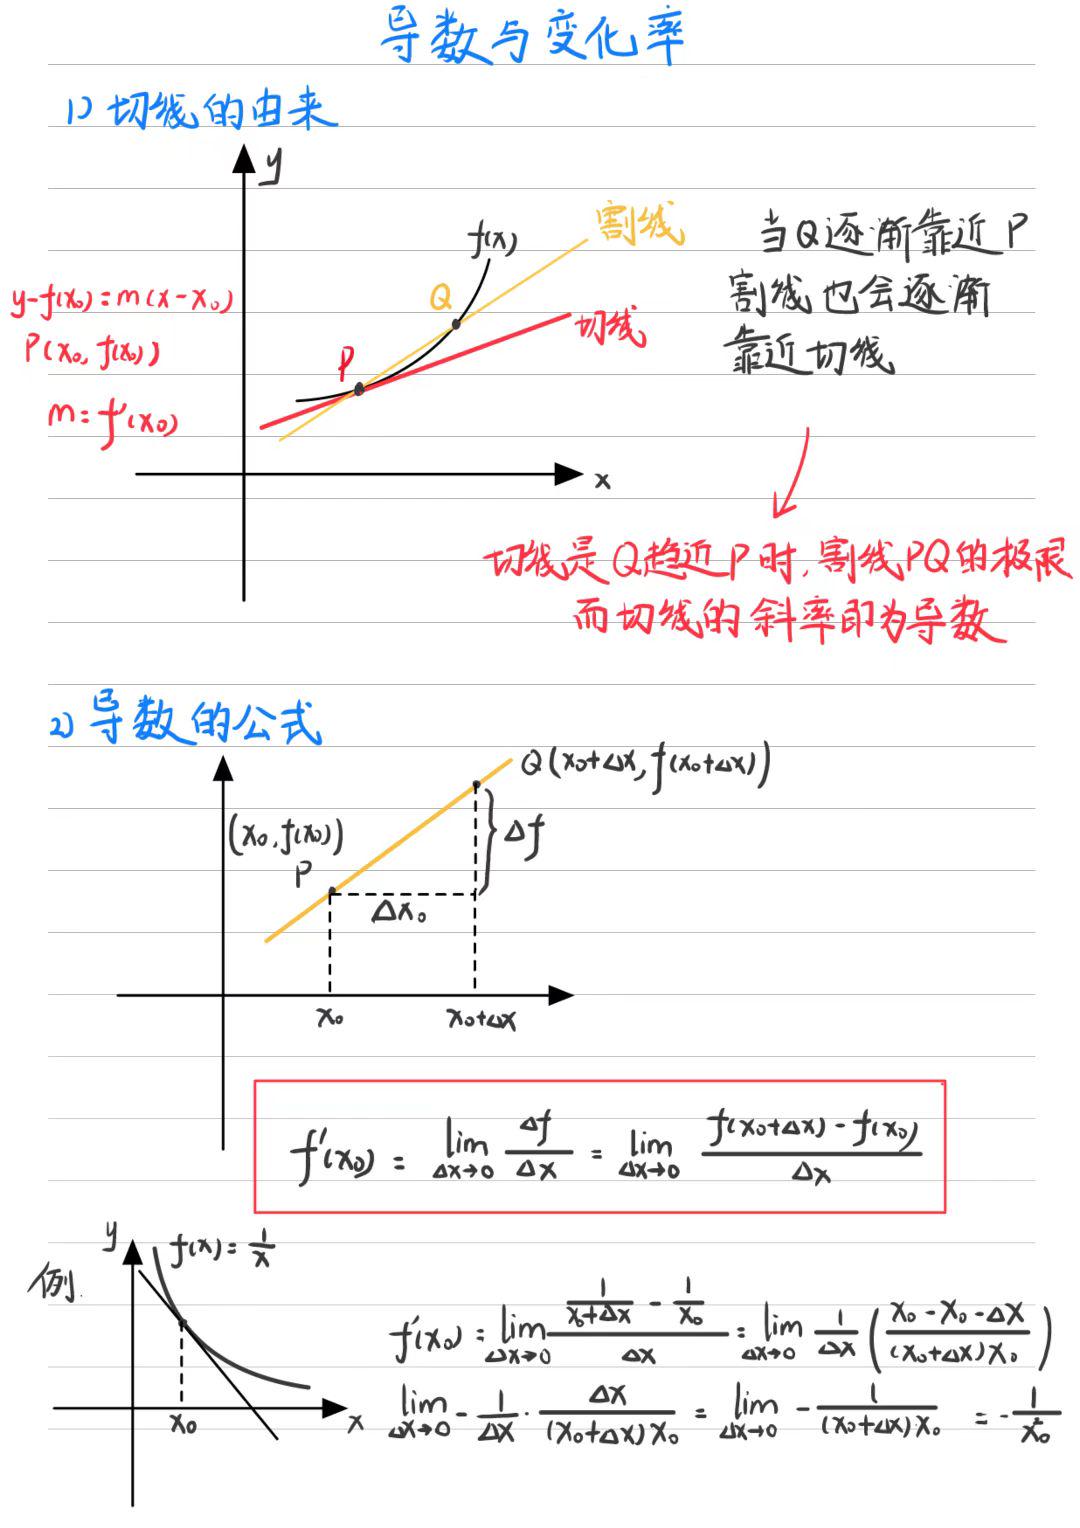 导数与变化率
1) 切线的由来
y
f(x)
割线
Q
切线
P
x
y-f(x₀)=m(x-x₀)
P(x₀, f(x₀))
m=f'(x₀)
当Q逐渐靠近P
割线也会逐渐
靠近切线
切线是Q趋近P时,割线PQ的极限
而切线的斜率即为导数
2) 导数的公式
Q(x₀+Δx, f(x₀+Δx))
(x₀, f(x₀))
P
Δf
Δx₀
x₀
x₀+Δx
f'(x₀) = lim_{Δx→0} Δf/Δx = lim_{Δx→0} (f(x₀+Δx)-f(x₀))/Δx
例.
y
f(x)=1/x
x₀
x
f'(x₀) = lim_{Δx→0} (1/(x₀+Δx) - 1/x₀)/Δx = lim_{Δx→0} 1/Δx ((x₀-x₀-Δx)/((x₀+Δx)x₀))
lim_{Δx→0} -1/Δx · Δx/((x₀+Δx)x₀) = lim_{Δx→0} -1/((x₀+Δx)x₀) = -1/x₀²